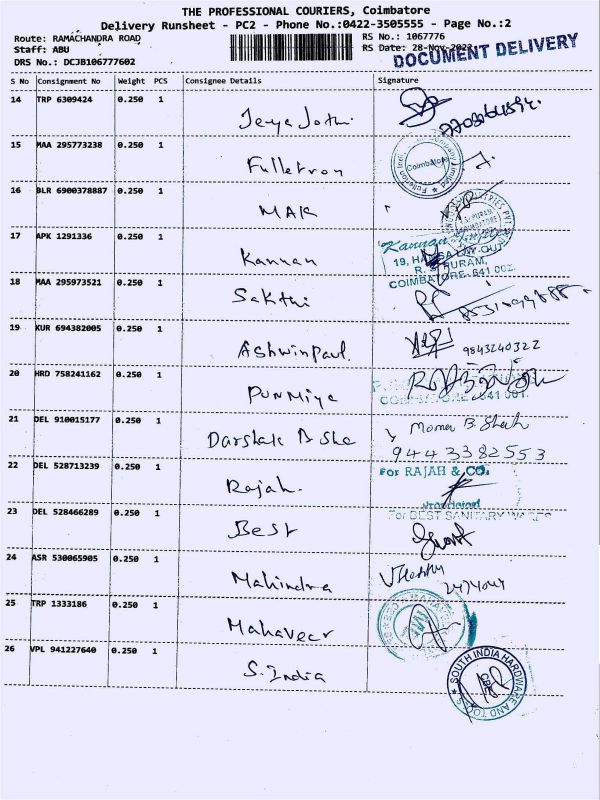 THE PROFESSIONAL COURIERS, Coimbatore
Delivery Runsheet - PC2 - Phone No.:0422-3505555 - Page No.:2
Route: RAMACHANDRA ROAD RS No.: 1067776
Staff: ABU RS Date: 28-Nov-2023
DRS No.: DCJB106777602 DOCUMENT DELIVERY
S No Consignment No Weight PCS Consignee Details Signature
14 TRP 6309424 0.250 1 Jeya Jothi
15 MAA 295773238 0.250 1 Fulletron Coimbatore
16 BLR 6900378887 0.250 1 MAK
17 APK 1291336 0.250 1 Kannan
R. S. PURAM,
COIMBATORE. 641 002.
18 MAA 295973521 0.250 1 Sakthi
19 KUR 694382005 0.250 1 Ashwin paul. 9843240322
20 HRD 758241162 0.250 1 Punmiya
COIMBATORE 641 001.
21 DEL 910015177 0.250 1 Darshak B Sha B. Shah
9443382553
22 DEL 528713239 0.250 1 Rajah. For RAJAH & CO.
23 DEL 528466289 0.250 1 Best For BEST SANITARY WARES
24 ASR 530065905 0.250 1 Mahindra
25 TRP 1333186 0.250 1 Mahaveer
26 VPL 941227640 0.250 1 S. India SOUTH INDIA HARDWARE AND TOOLS CBE